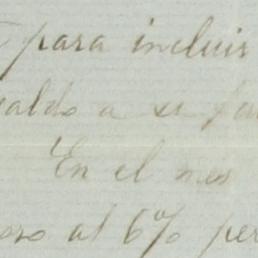 para incluir
saldo a su fa
En el mes
oro al 6% per